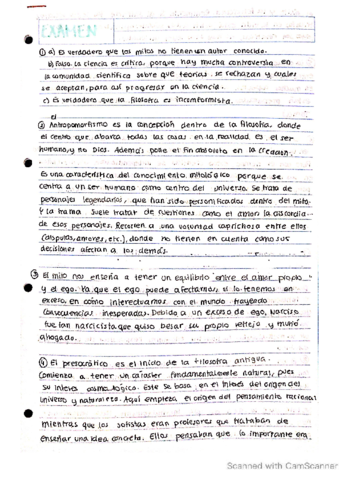 EXAMEN
① a) Es verdadero que los mitos no tienen un autor conocido.
b) Falso. La ciencia es crítica, porque hay mucha controversia en
la comunidad científica sobre que teorías se rechazan y cuales
se aceptan, para así progresar en la ciencia.
c) Es verdadero que la filosofía es inconformista.
d)
② Antropomorfismo es la concepción dentro de la filosofía, donde
el centro que abarca todas las cosas en la realidad es el ser
humano, y no Dios. Además pone el fin absoluto en la creación.
Es una característica del conocimiento mitológico porque se
centra a un ser humano como centro del universo. Se trata de
personajes legendarios, que han sido personificados dentro del mito
y la trama suele tratar de cuestiones como el amor, la discordia
de esos personajes. Recurren a una voluntad caprichosa entre ellos
(disputas, amores, etc.), donde no tienen en cuenta como sus
decisiones afectan a los demás.
③ El mito nos enseña a tener un equilibrio entre el amor propio
y el ego. Ya que el ego puede afectarnos, si lo tenemos en
exceso, en cómo interactuamos con el mundo trayendo
consecuencias inesperadas. Debido a un exceso de ego, Narciso
fue tan narcicista que quiso besar su propio reflejo y murió
ahogado.
④ El presocrático es el inicio de la filosofía antigua.
Comienza a tener un carácter fundamentalmente natural, pues
su interés cosmológico. Este se basa en el interés del origen del
universo y naturaleza. Aquí empieza el origen del pensamiento racional
mientras que los sofistas eran profesores que trataban de
enseñar una idea concreta. Ellos pensaban que lo importante era
Scanned with CamScanner